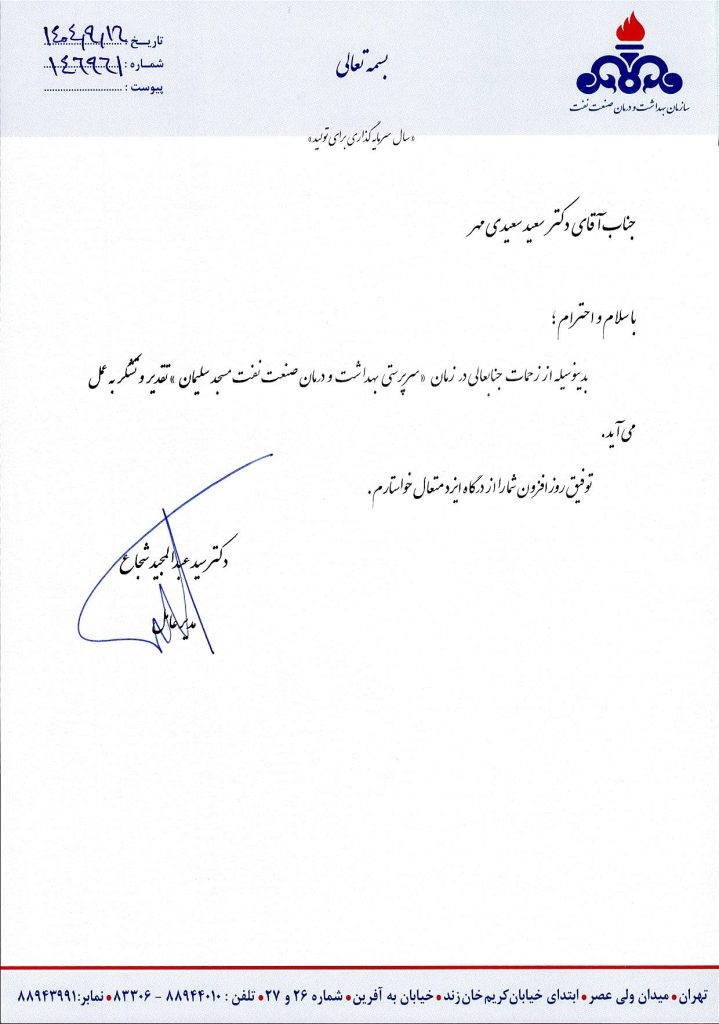 بسمه تعالی
سازمان بهداشت و درمان صنعت نفت
تاریخ : ۱۴۰۴/۹/۱۶
شماره : ۱۴۶۹۶۱
پیوست :
«سال سرمایه گذاری برای تولید»
جناب آقای دکتر سعید سعیدی مهر
با سلام و احترام ؛
بدینوسیله از زحمات جنابعالی در زمان «سرپرستی بهداشت و درمان صنعت نفت مسجد سلیمان» تقدیر و تشکر به عمل
می آید.
توفیق روز افزون شما را از درگاه ایزد متعال خواستارم.
دکتر سید عبدالمجید شجاع
مدیر عامل
تهران • میدان ولی عصر • ابتدای خیابان کریم خان زند • خیابان به آفرین • شماره ۲۶ و ۲۷ • تلفن : ۸۸۹۴۴۰۱۰ - ۸۳۳۰۶ • نمابر: ۸۸۹۴۳۹۹۱